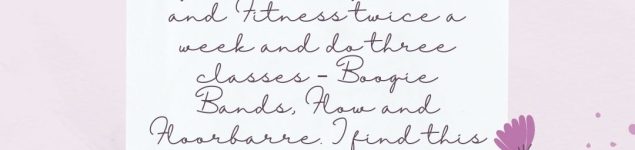 and Fitness twice a
week and do three
classes - Boogie
Bands, Flow and
Floorbarre. I find this